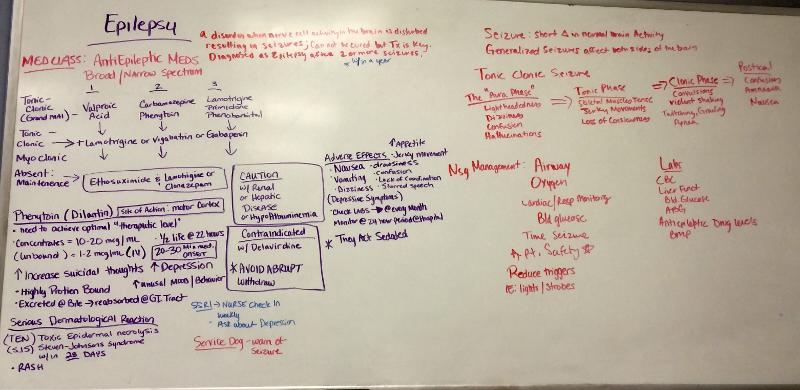 Epilepsy
a disorder when nerve cell activity in the brain is disturbed
resulting in seizures; Can not be cured but Tx is Key.
Diagnosed as Epilepsy after 2 or more seizures.
w/in a year
MED CLASS: AntiEpileptic MEDS
Broad/Narrow spectrum
1 2 3
Tonic-Clonic (Grand mal) → Valproic Acid
Carbamazepine
Phenytoin
Lamotrigine
Primidone
Phenobarbital
Tonic-
Clonic → + Lamotrigine or Vigabatrin or Gabapentin
Myoclonic
Absent:
Maintenence → Ethosuximide & Lamotrigine or
Clonazepam
Phenytoin (Dilantin) Site of Action: motor Cortex
• need to achieve optimal "therapeutic level"
• Concentrates = 10-20 mcg/mL 1/2 life @ 22 hours
(Unbound) = 1-2 mcg/mL (IV) 20-30 Min med. onset
↑ Increase suicidal thoughts ↑ Depression
• Highly Protien Bound ↑ unusual Mood/Behavior
• Excreted @ Bile → reabsorbed @ GI Tract
Serious Dermatological Reaction
(TEN) Toxic Epidermal necrolysis
(SJS) Steven-Johnsons Syndrome
w/in 28 DAYS
• RASH
CAUTION
w/ Renal
or Hepatic
Disease
or Hypoalbuminemia
Contraindicated
w/ Delavirdine
* AVOID ABRUPT
withdraw
SSRI → Nurse Check In
weekly
• Ask about Depression
Service Dog - warn of
Seizure
↑ Appetite
Adverse Effects - Jerky movement
• Nausea - drowsiness
• Vomiting - Confusion
• Dizziness - Lack of Coordination
- Slurred speech
(Depressive Symptoms)
• Check LABS → @ every Month
Monitor @ 24 hour period @ Hospital
* They Act Sedated
Seizure: Short Δ in normal Brain Activity
Generalized Seizures affect both sides of the brain
Tonic Clonic Seizure
The "Aura Phase"
Lightheadedness
Dizziness
Confusion
Hallucinations
⇒ Tonic Phase
Skeletal Muscles Tense
Jerky Movements
Loss of Consciousness
⇒ Clonic Phase
Convulsions
Violent Shaking
Twitching, Growling
Apnea
⇒ Postical
Confusions
Amnesia
Nausea
Nsg Management: Airway
Oxygen
Cardiac/Resp Monitory
Bld glucose
Time Seizure
☆ Pt. Safety ☆
Reduce triggers
re: lights/strobes
Labs
CBC
Liver Funct
Bld. Glucose
ABG
Antiepileptic Drug levels
BMP